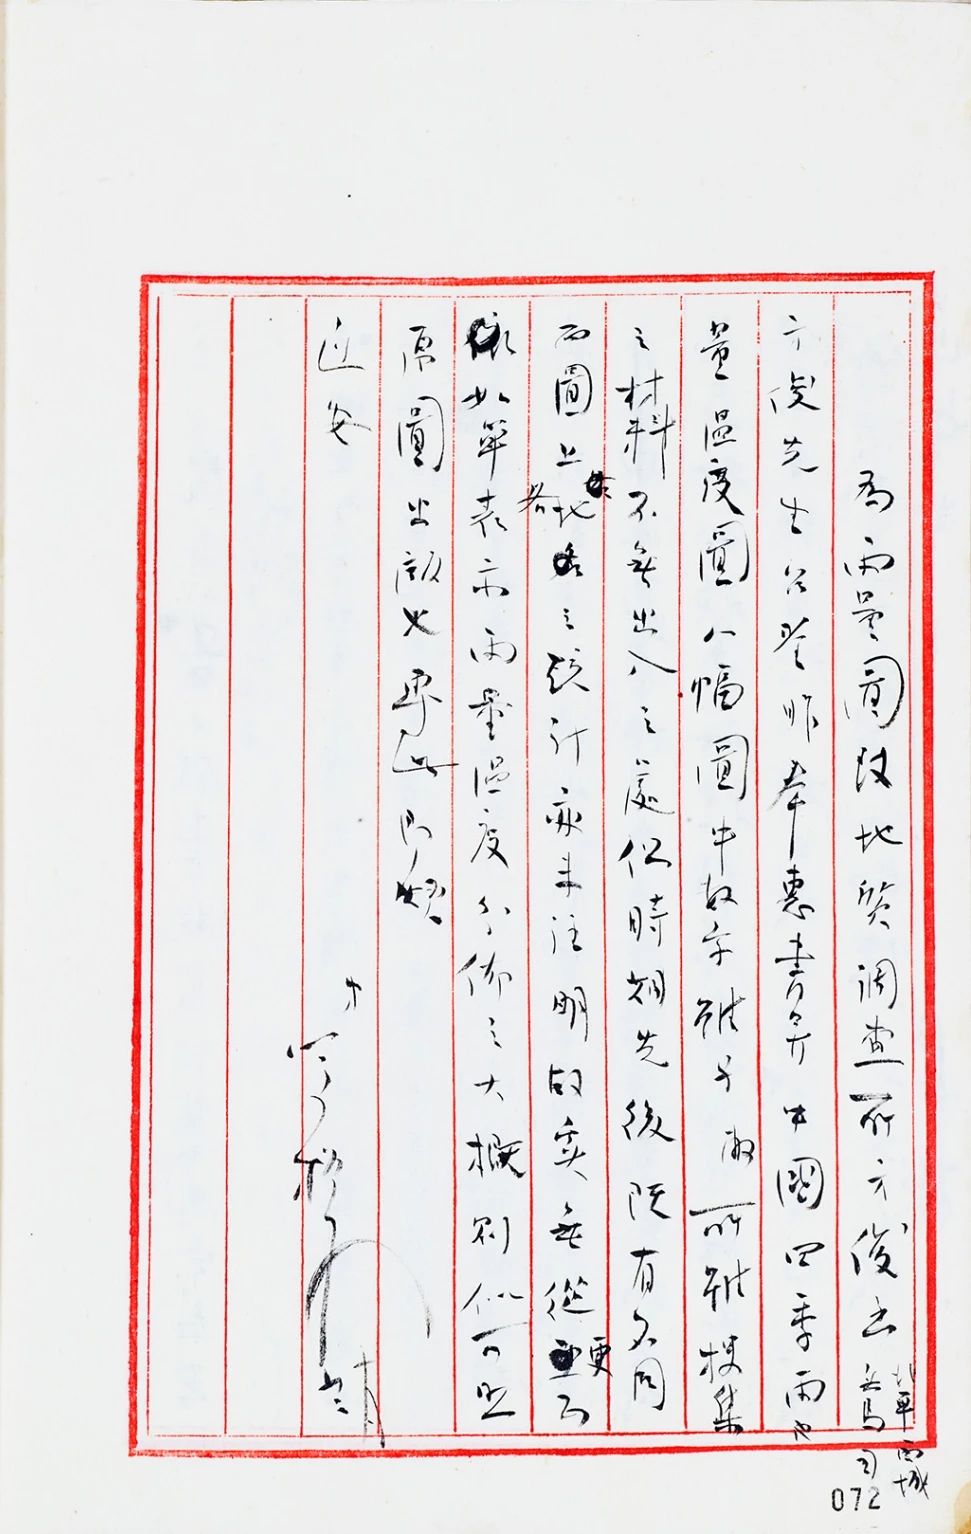 為雨量圖致地質調查所方俊函 北平西城兵馬司
方俊先生公鑒昨奉惠書并中國四季雨
量溫度圖八幅圖中數字雖與敝所雖搜集
之材料不無出入之處但時期先後既有不同
而圖上各地之統計亦未注明故實無從更正
依如單表示雨量溫度分佈之大概則似可照
原圖出版也專此即頌
近安
弟
啓
072